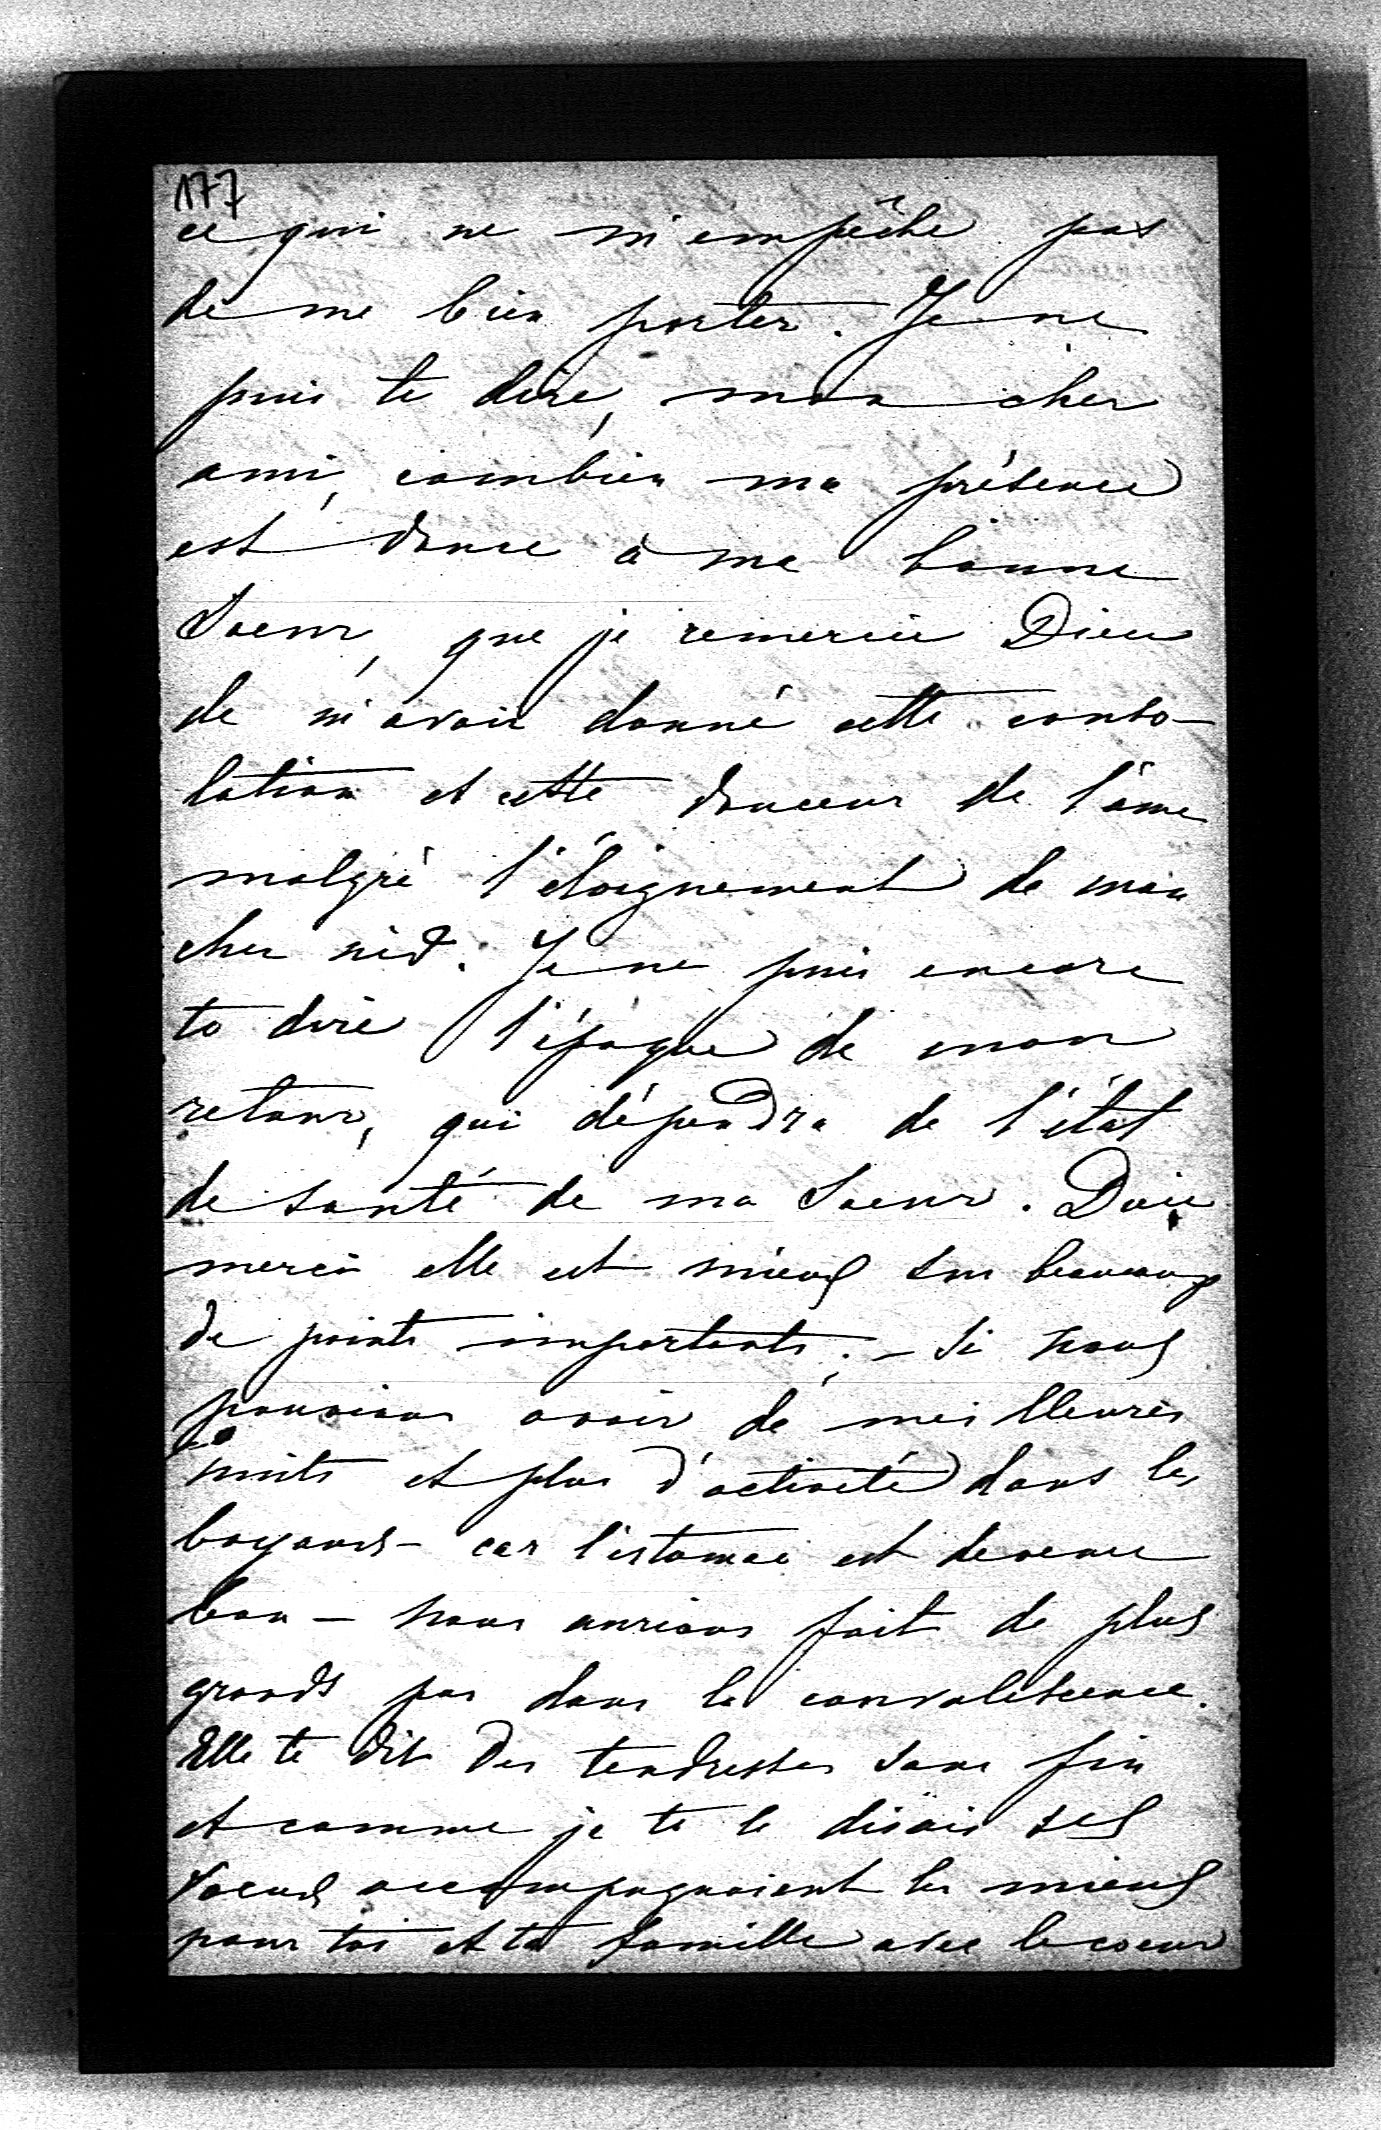 177
ce qui ne m'empêche pas
de me bien porter. Je ne
puis te dire, mon cher
ami, combien ma présence
est douce à ma bonne
Soeur, que je remercie Dieu
de m'avoir donné cette conso-
lation et cette douceur de l'âme
malgré l'éloignement de mon
cher nid. Je ne puis encore
te dire l'époque de mon
retour, qui dépendra de l'état
de santé de ma Soeur. Dieu
merci elle est mieux sur beaucoup
de points importants; – Si nous
pouvions avoir de meilleures
nuits et plus d'activité dans les
boyaux – car l'estomac est devenu
bon – nous aurions fait de plus
grands pas dans la convalescence.
Elle te dit des tendresses sans fin
et comme je te le disais ses
voeux accompagnaient les miens
pour toi et ta famille avec le coeur